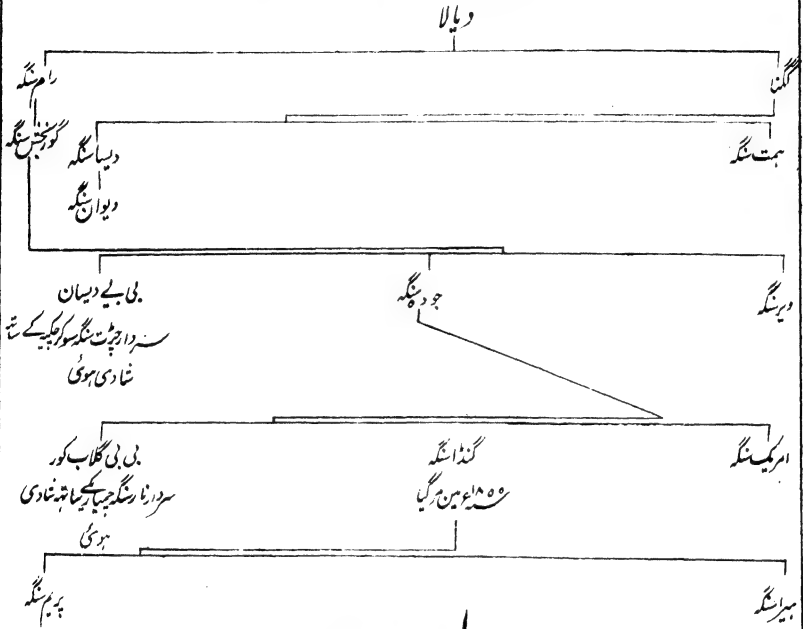 دیالا
گگنا
رام سنگہ
گوربخش سنگہ
ہمت سنگہ
دیسا سنگہ
دیوان سنگہ
ویر سنگہ
جودہ سنگہ
بی بی دیسان
سردار چڑت سنگہ سوکرچکیہ کے ساتہ
شادی ہوئی
امریک سنگہ
گنڈا سنگہ
سنہ ۱۸۵۵ع مین مرگیا
بی بی گلاب کور
سردار نار سنگہ چمیاری کے ساتہ شادی
ہوئی
ہیرا سنگہ
پریم سنگہ